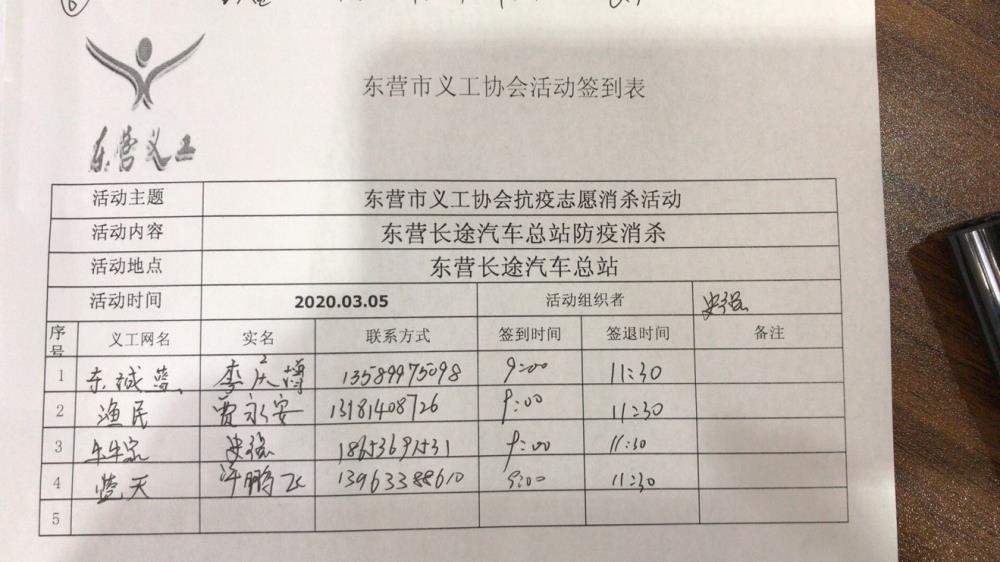 6
东营义工
东营市义工协会活动签到表
活动主题 东营市义工协会抗疫志愿消杀活动
活动内容 东营长途汽车总站防疫消杀
活动地点 东营长途汽车总站
活动时间 2020.03.05 活动组织者 史强
序号 义工网名 实名 联系方式 签到时间 签退时间 备注
1 东城 李庆博 13589975098 9:00 11:30
2 渔民 贾永安 13181408726 9:00 11:30
3 牛牛 史强 18653691531 9:00 11:30
4 蓝天 许鹏飞 13963388610 9:00 11:30
5